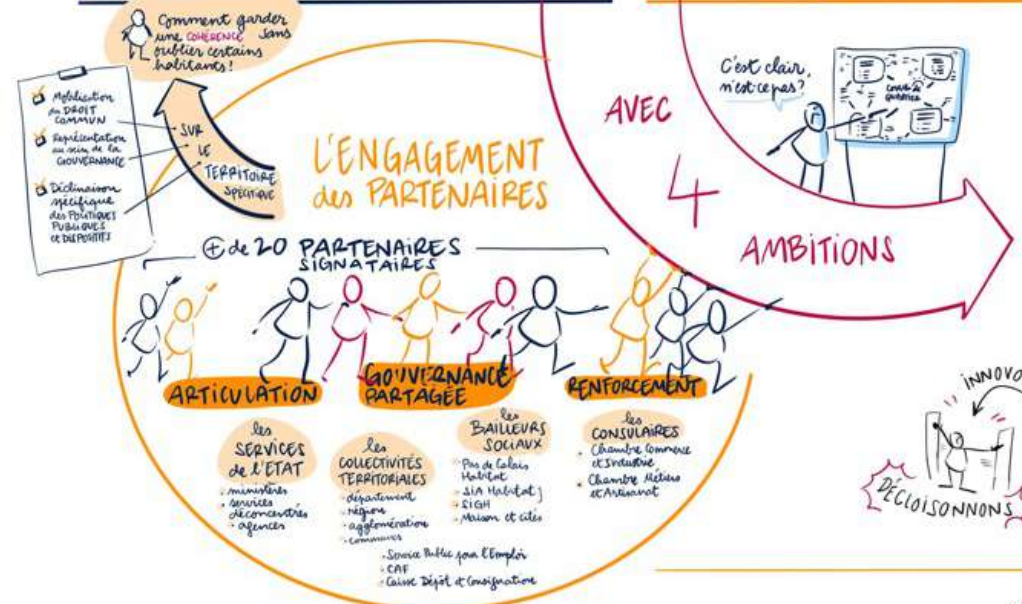 Comment garder
une COHÉRENCE sans
oublier certains
habitants!
Mobilisation
du DROIT
COMMUN
Représentation
au sein de la
GOUVERNANCE
Déclinaison
spécifique
des POLITIQUES
PUBLIQUES
et DISPOSITIFS
SUR
LE
TERRITOIRE
SPÉCIFIQUE
L'ENGAGEMENT
des PARTENAIRES
+ de 20 PARTENAIRES
SIGNATAIRES
ARTICULATION
GOUVERNANCE
PARTAGÉE
RENFORCEMENT
les
SERVICES
de l'ETAT
ministères
services
déconcentrés
agences
les
COLLECTIVITÉS
TERRITORIALES
département
région
agglomération
communes
les
BAILLEURS
SOCIAUX
Pas de Calais
Habitat
SIA Habitat
SIGH
Maison et cités
Service Public pour l'Emploi
CAF
Caisse Dépôt et Consignation
les
CONSULAIRES
Chambre Commerce
et Industrie
Chambre Métiers
et Artisanat
AVEC
4
AMBITIONS
C'est clair,
n'est ce pas?
INNOVO
DÉCLOISONNONS